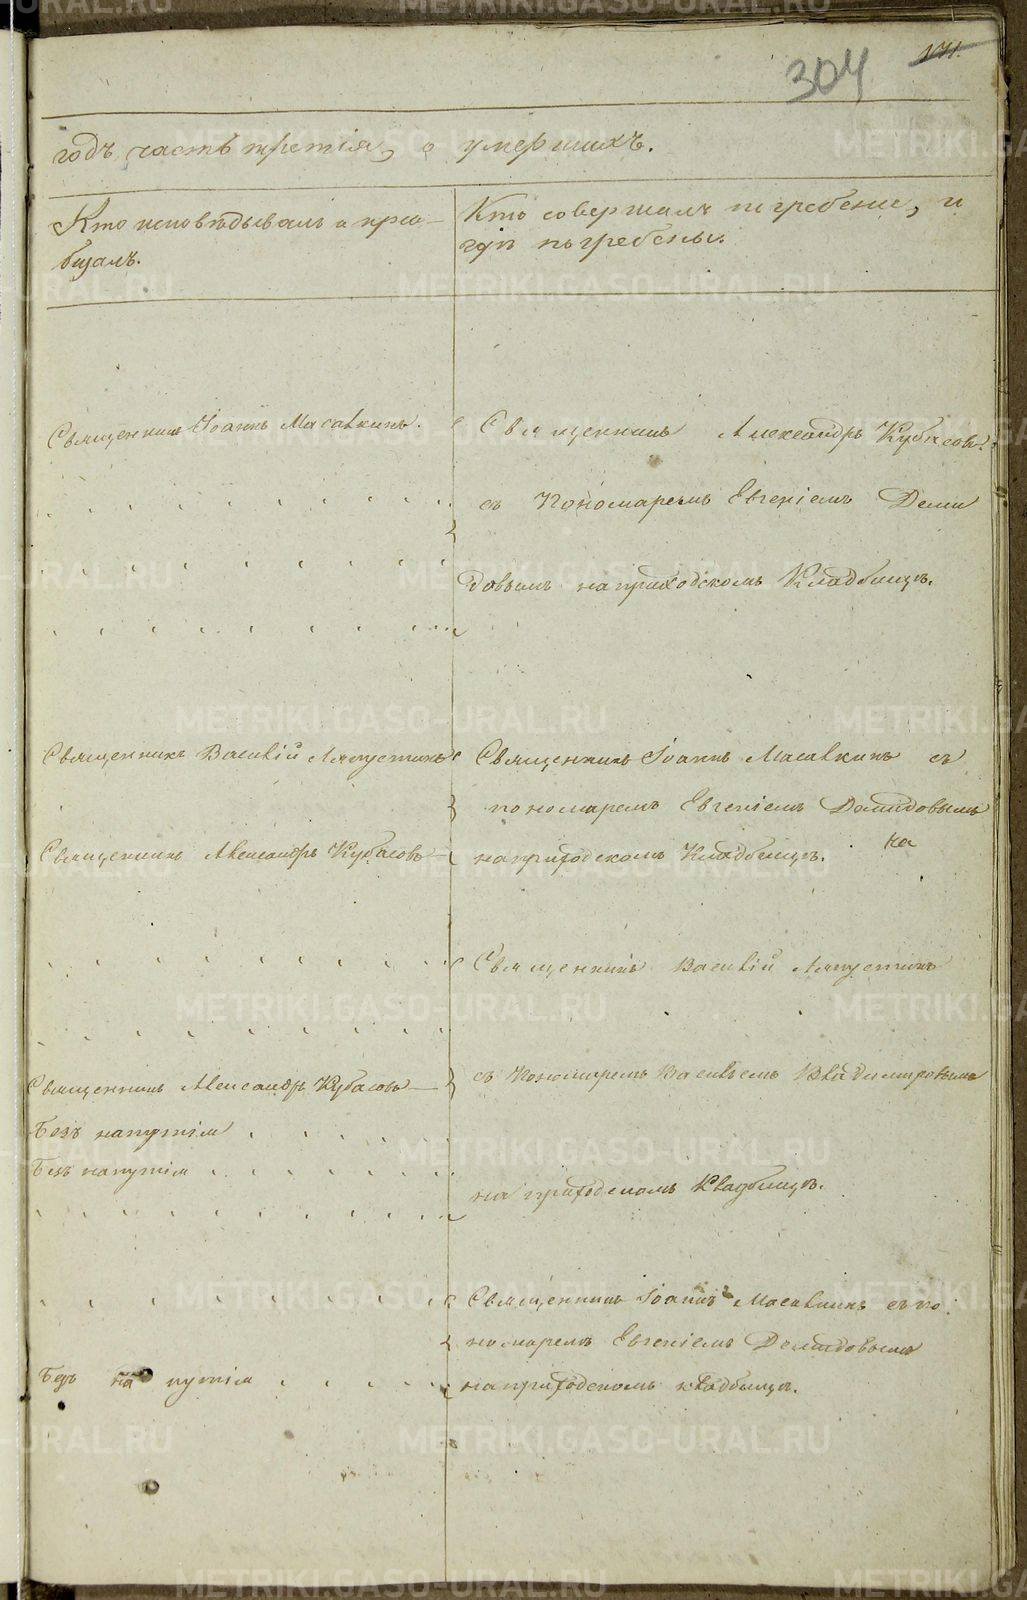 304 171.
годъ, часть третія, о умершихъ.
Кто исповѣдывалъ и прі-
общалъ.
Кто совершалъ погребеніе, и
гдѣ погребены.
Священникъ Іоаннъ Масавкинъ.
Священникъ Александръ Кубасовъ
съ Пономаремъ Евгеніемъ Деми
довымъ на приходскомъ Кладбищѣ.
Священникъ Василій Ляпустинъ
Священникъ Іоаннъ Масавкинъ съ
пономаремъ Евгеніемъ Демидовымъ
на
Священникъ Александръ Кубасовъ
на приходскомъ Кладбищѣ.
Священникъ Василій Ляпустинъ
Священникъ Александръ Кубасовъ
съ Пономаремъ Василіемъ Владимировымъ
Безъ напутія
Безъ напутія
на приходскомъ Кладбищѣ.
Священникъ Іоаннъ Масавкинъ съ по
номаремъ Евгеніемъ Демидовымъ
Безъ напутія
на приходскомъ кладбищѣ.
METRIKI.GASO-URAL.RU